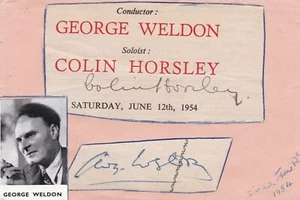 Conductor :
GEORGE WELDON
Soloist :
COLIN HORSLEY
Colin Horsley.
SATURDAY, JUNE 12th, 1954
GEORGE WELDON
1954